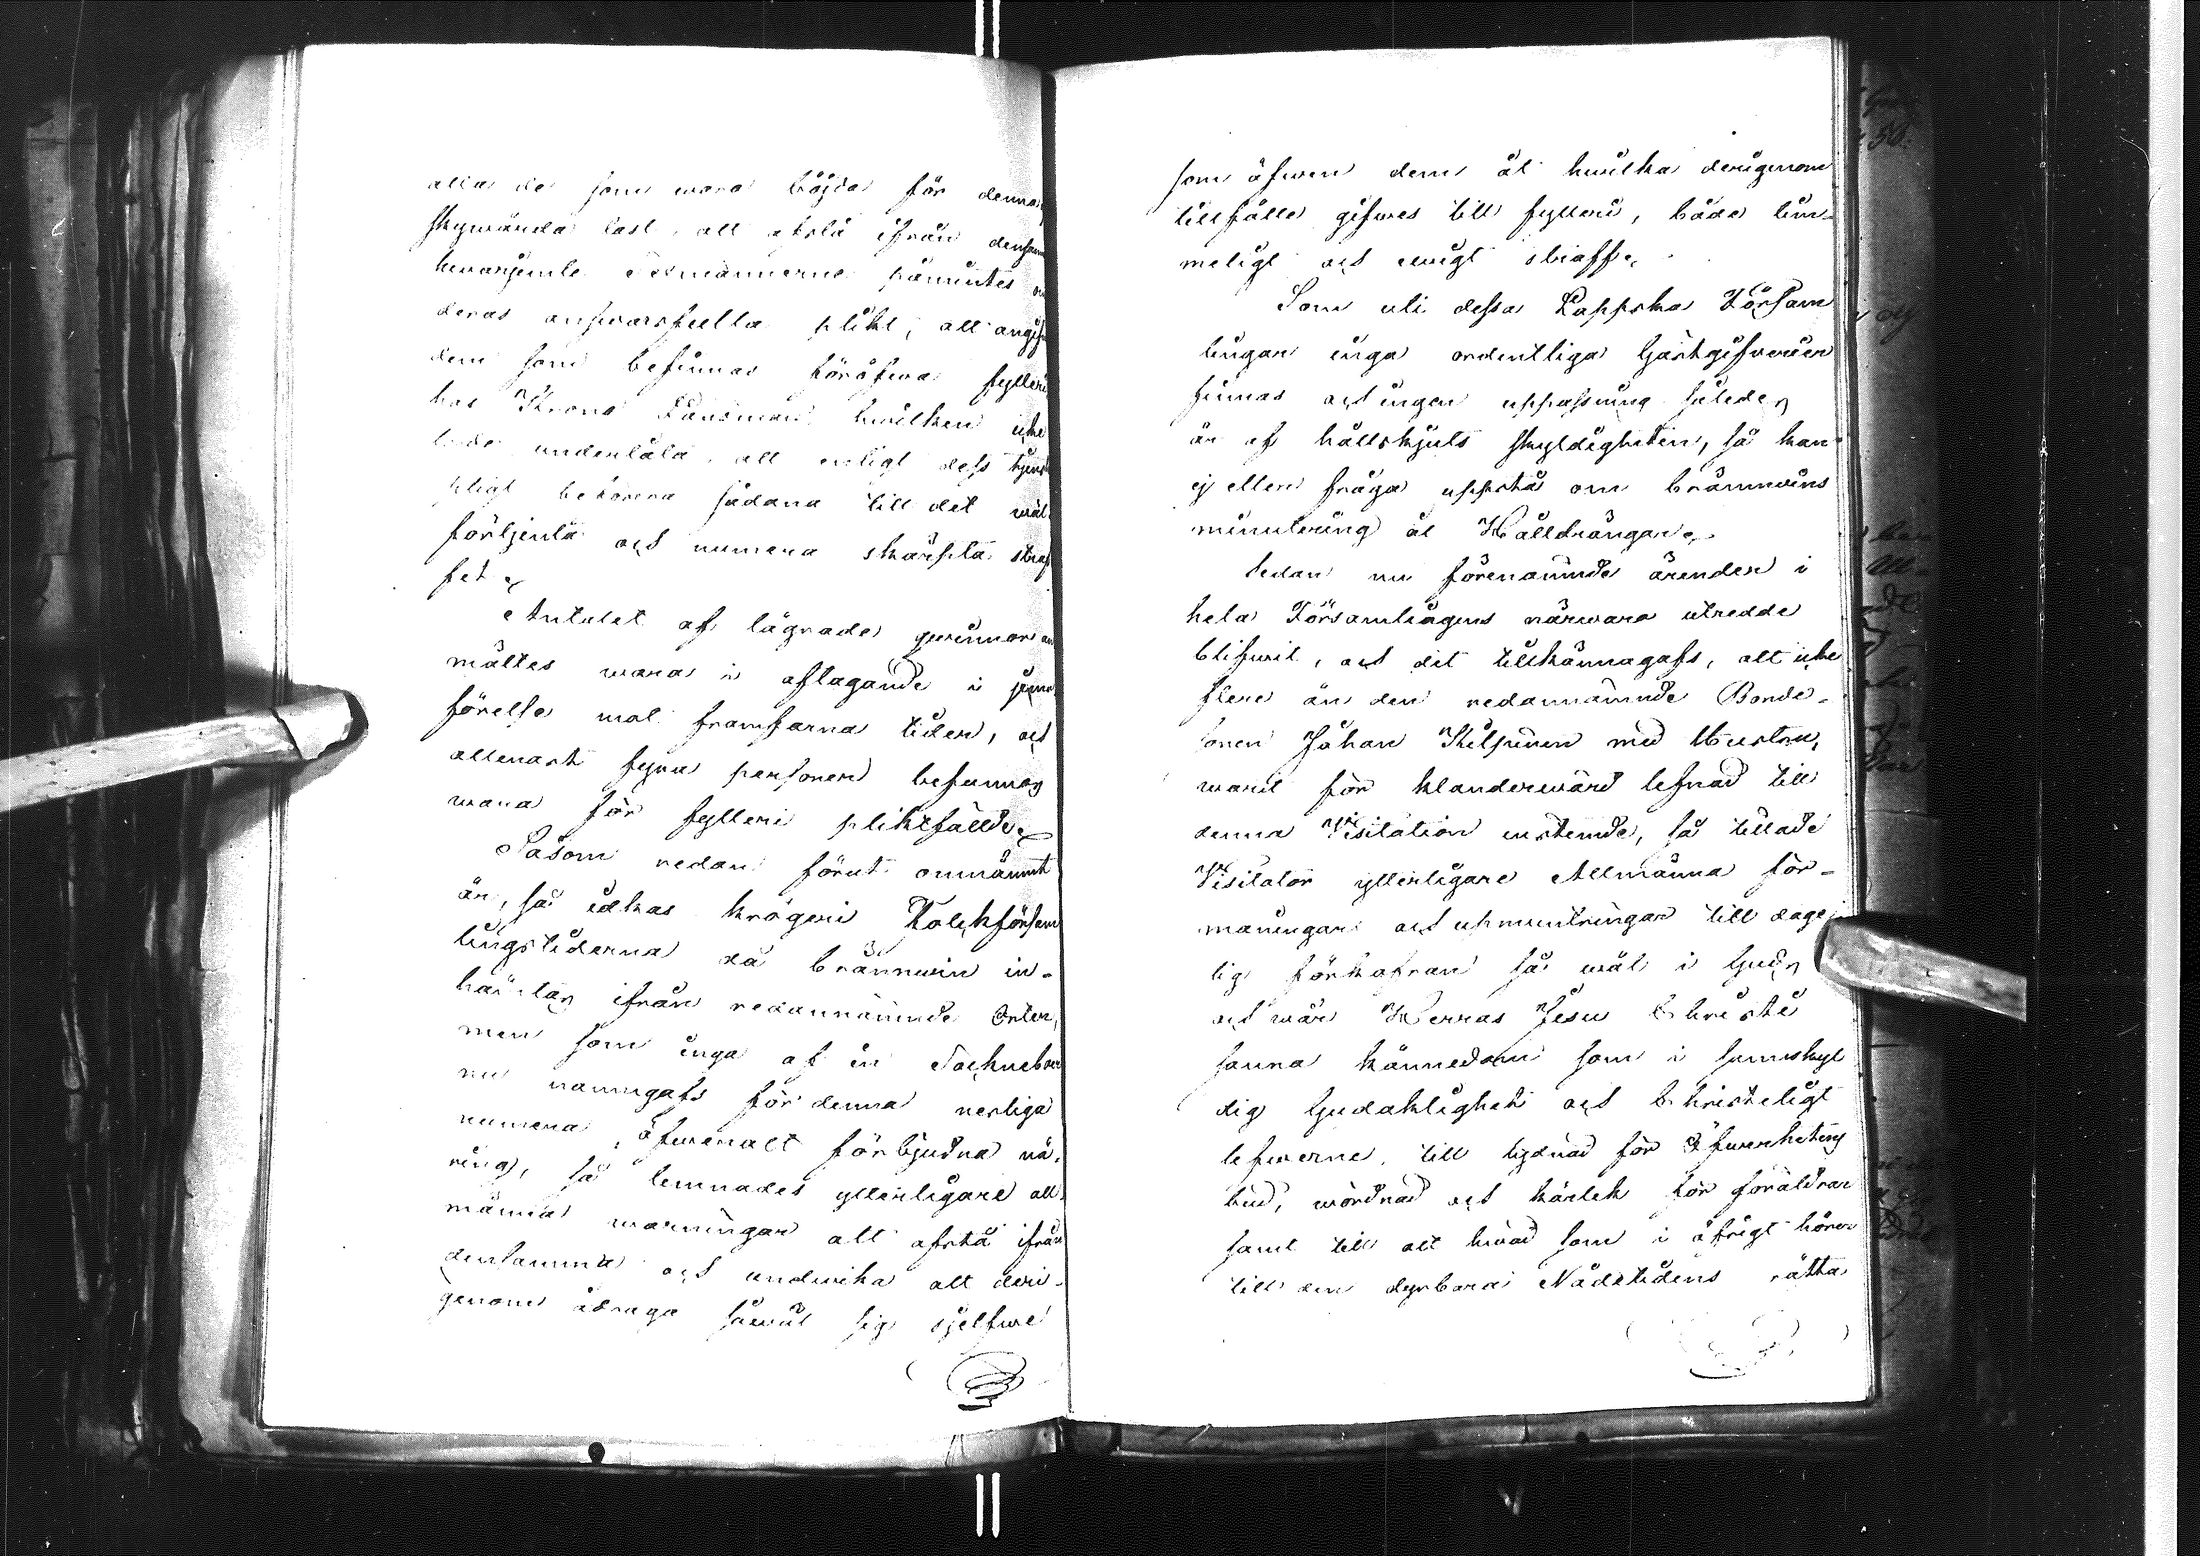 alla de som wore böjda för denna
skymärda last, att afstå ifrån densam
hwarjemte Sexmännerne påmintes om
deras answarsfulla plikt, att angifwa
dem som befinnas föröfwa fylleri
hos Krono Länsman hwilken icke
lärde underlåta, att enligt dess tjenst
pligt befordra sådana till det wäl
förtjenta och numera skärpta straf
fet.
Antalet af lägrade qwinnor an
mältes wara i aftagande i jem
förelse mot framfarna tider, och
allenast fyra personer befunnos
wara för fylleri pliktfällde.
Såsom redan förut omnämnt
är, så idkas krögeri Folckförsam
lingstiderna då bränwin in-
hämtas ifrån redannämnde Orter,
men som inga af in Socknebor
nu namngafs för denna nesliga
numera öfweralt förbjudna nä-
ring, så lemnades ytterligare all-
männa warningar att afstå ifrån
densamma och undwika att deri-
genom ådraga såwäl sig sjelfwe
som äfwen dem åt hwilka derigenom
tillfälle gifwes till fylleri, både tim-
meligt och ewigt straff.
Som uti dessa Lappska Församl
lingar inga ordentliga Gästgifwerier
finnas och ingen uppassning således
är af hållskjuts skyldigheten, så kan
ej eller fråga uppstå om brännwins
minutering åt Hålldrängar.
Sedan nu förenämnde ärender i
hela Församlingens närwaro utredde
blifwit, och det tillkännagafs, att icke
flere än den redannämnde Bonde-
sonen Johan Kiljunen med Hustru,
warit för klanderwärd lefnad till
denna Visitation instemde, så tillade
Visitator ytterligare Allmänna för-
maningar och upmuntringar till dage-
lig förkofran så wäl i Guds
och wår Herras Jesu Christi
sanna kännedom som i sannskyl
dig Gudaktighet och Christeligt
lefwerne, till lydnad för Öfwerhetens
bud, wördnad och kärlek för föräldrar
samt till alt hwad som i öfrigt hörer
till den dyrbara Nådetidens rätta